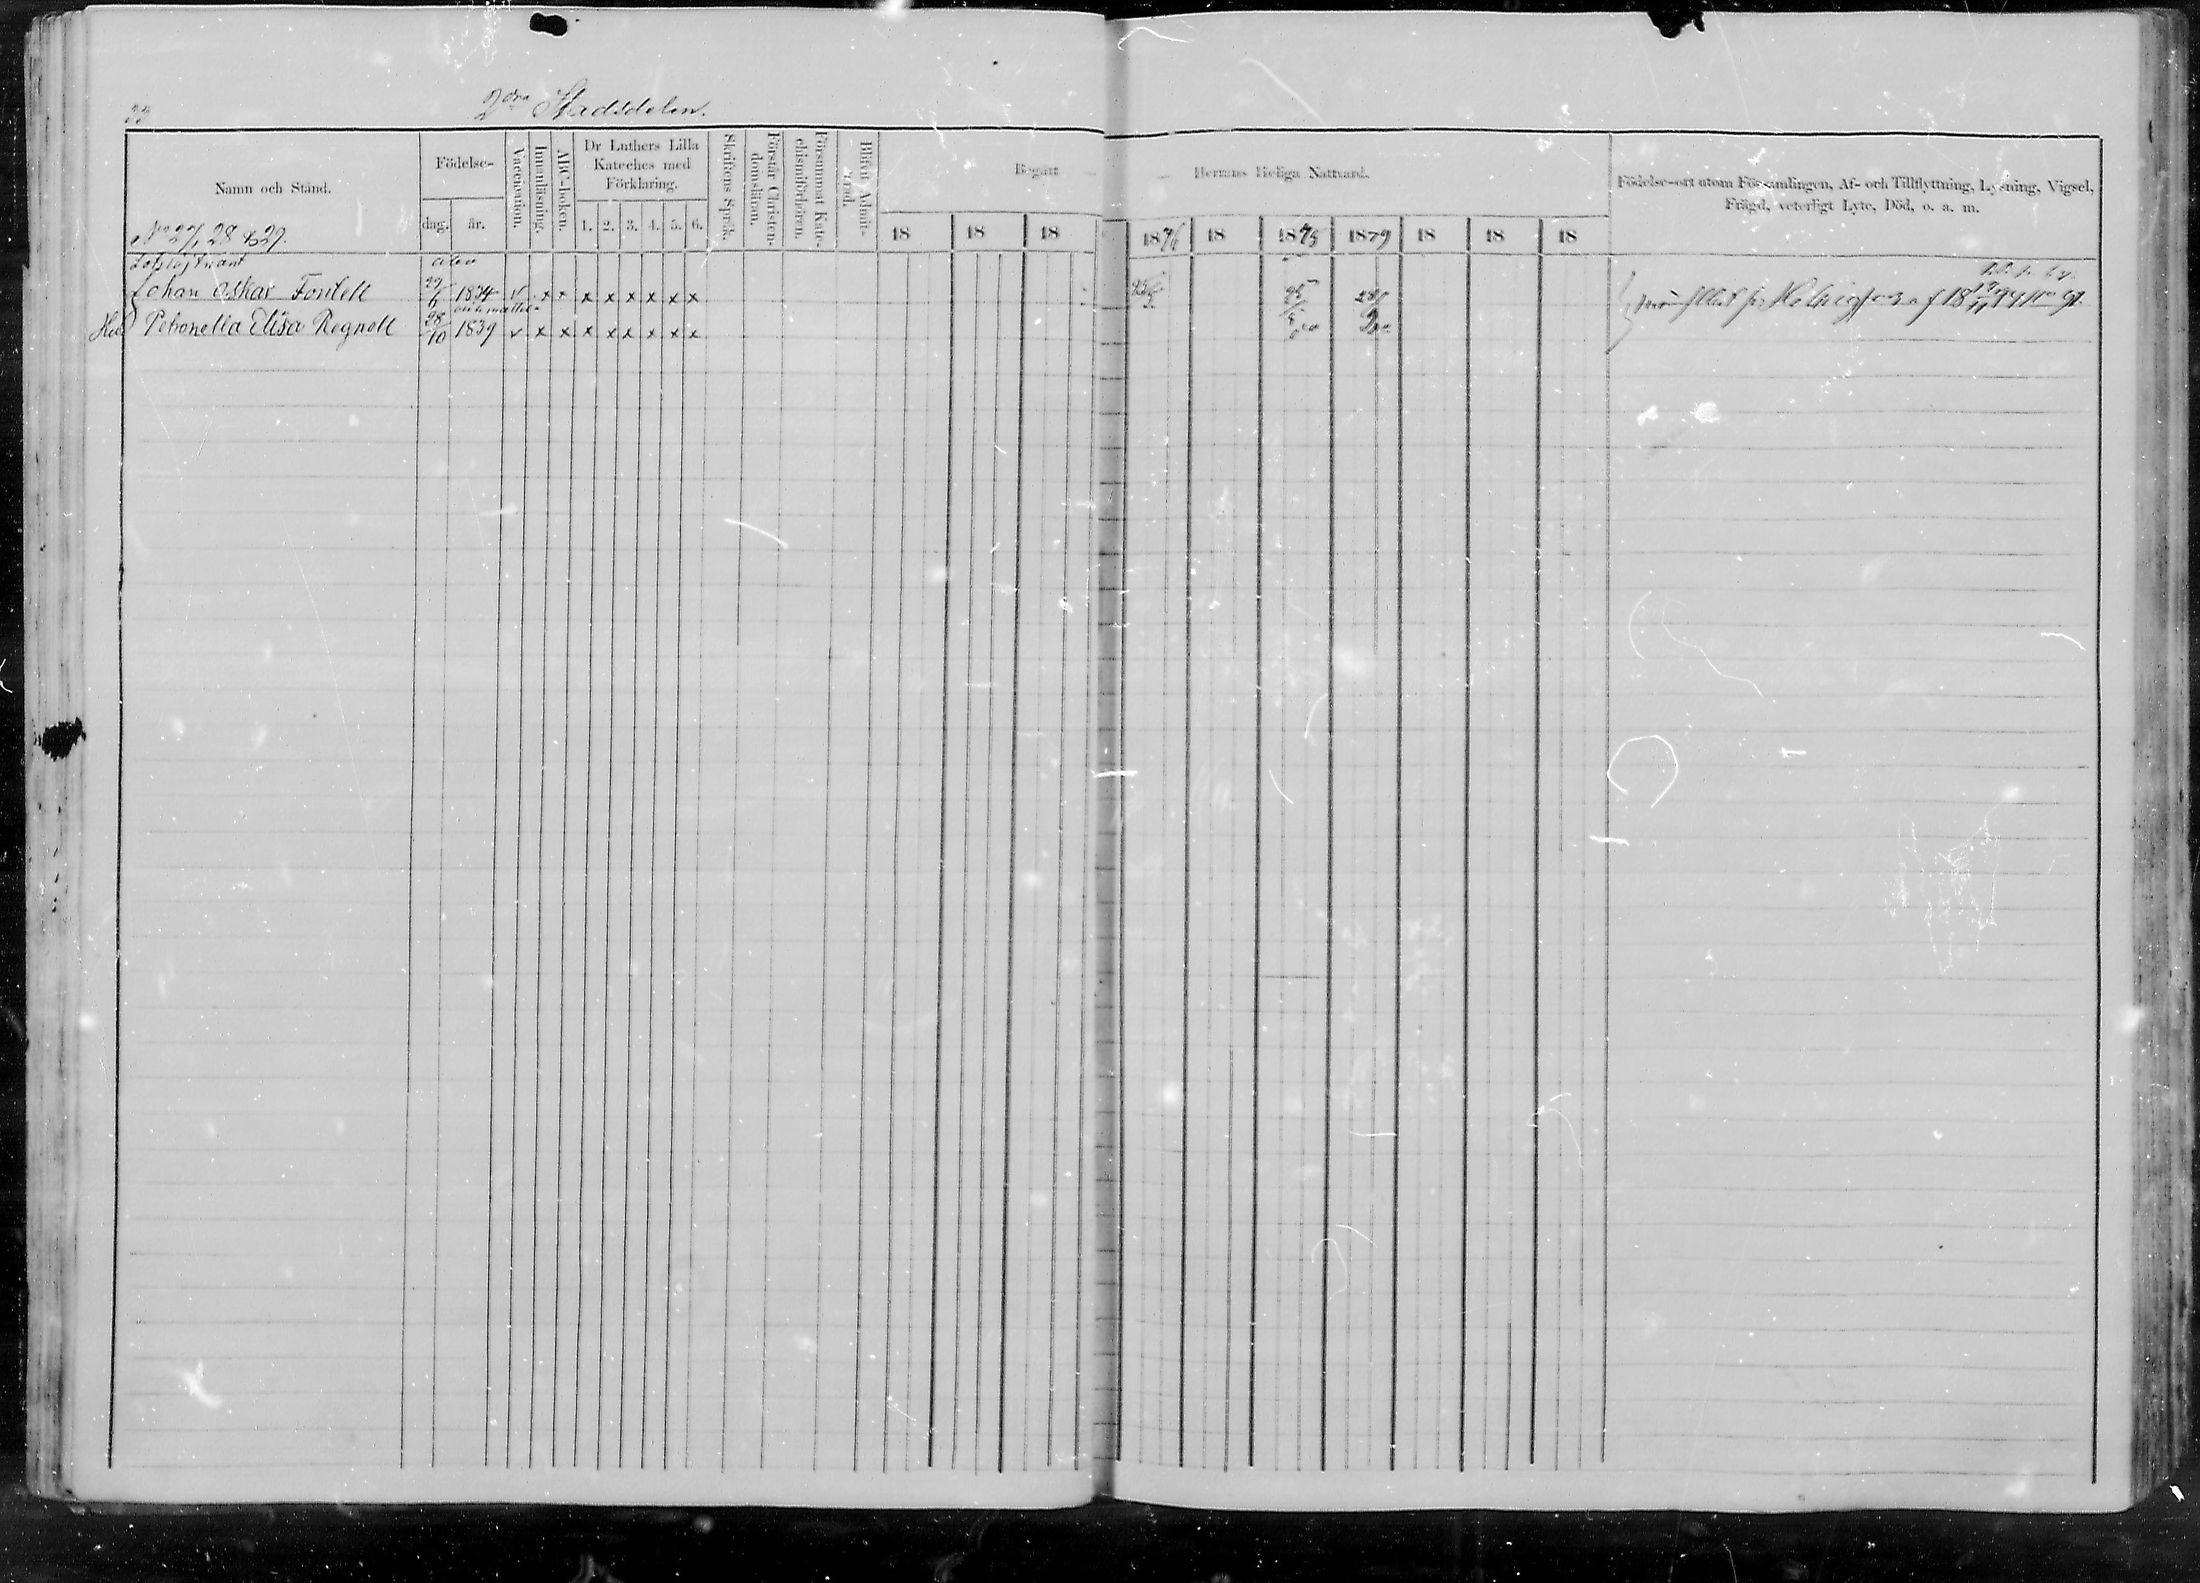 33
2dra Stadsdelen.
Namn och Stånd.
Födelse-
dag.
år.
Vaccination.
Innanläsning.
ABC-boken.
Dr Luthers Lilla
Kateches med
Förklaring.
1. 2. 3. 4. 5. 6.
Skriftens Språk.
Förstår Christen-
domsläran.
Försummat Kate-
chismiförhören.
Blifvit Admit-
terad.
Begått
Herrans Heliga Nattvard.
18 18 18
1876 18 1875 1879 18 18 18
Födelse-ort utom Församlingen, Af- och Tillflyttning, Lysning, Vigsel,
Frägd, veterligt Lyte, Död, o. a. m.
No 27, 28 & 29.
Johan Oskar Fontell 29/6 1834 v x x x x x x x x
Hu Petronella Elisa Regnell 28/10 1839 v x x x x x x x x